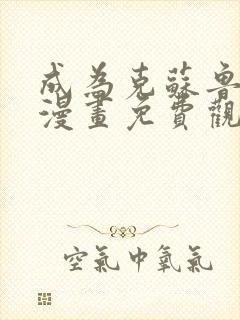 成為克蘇魯
漫畫免費觀
空氣中氧氣